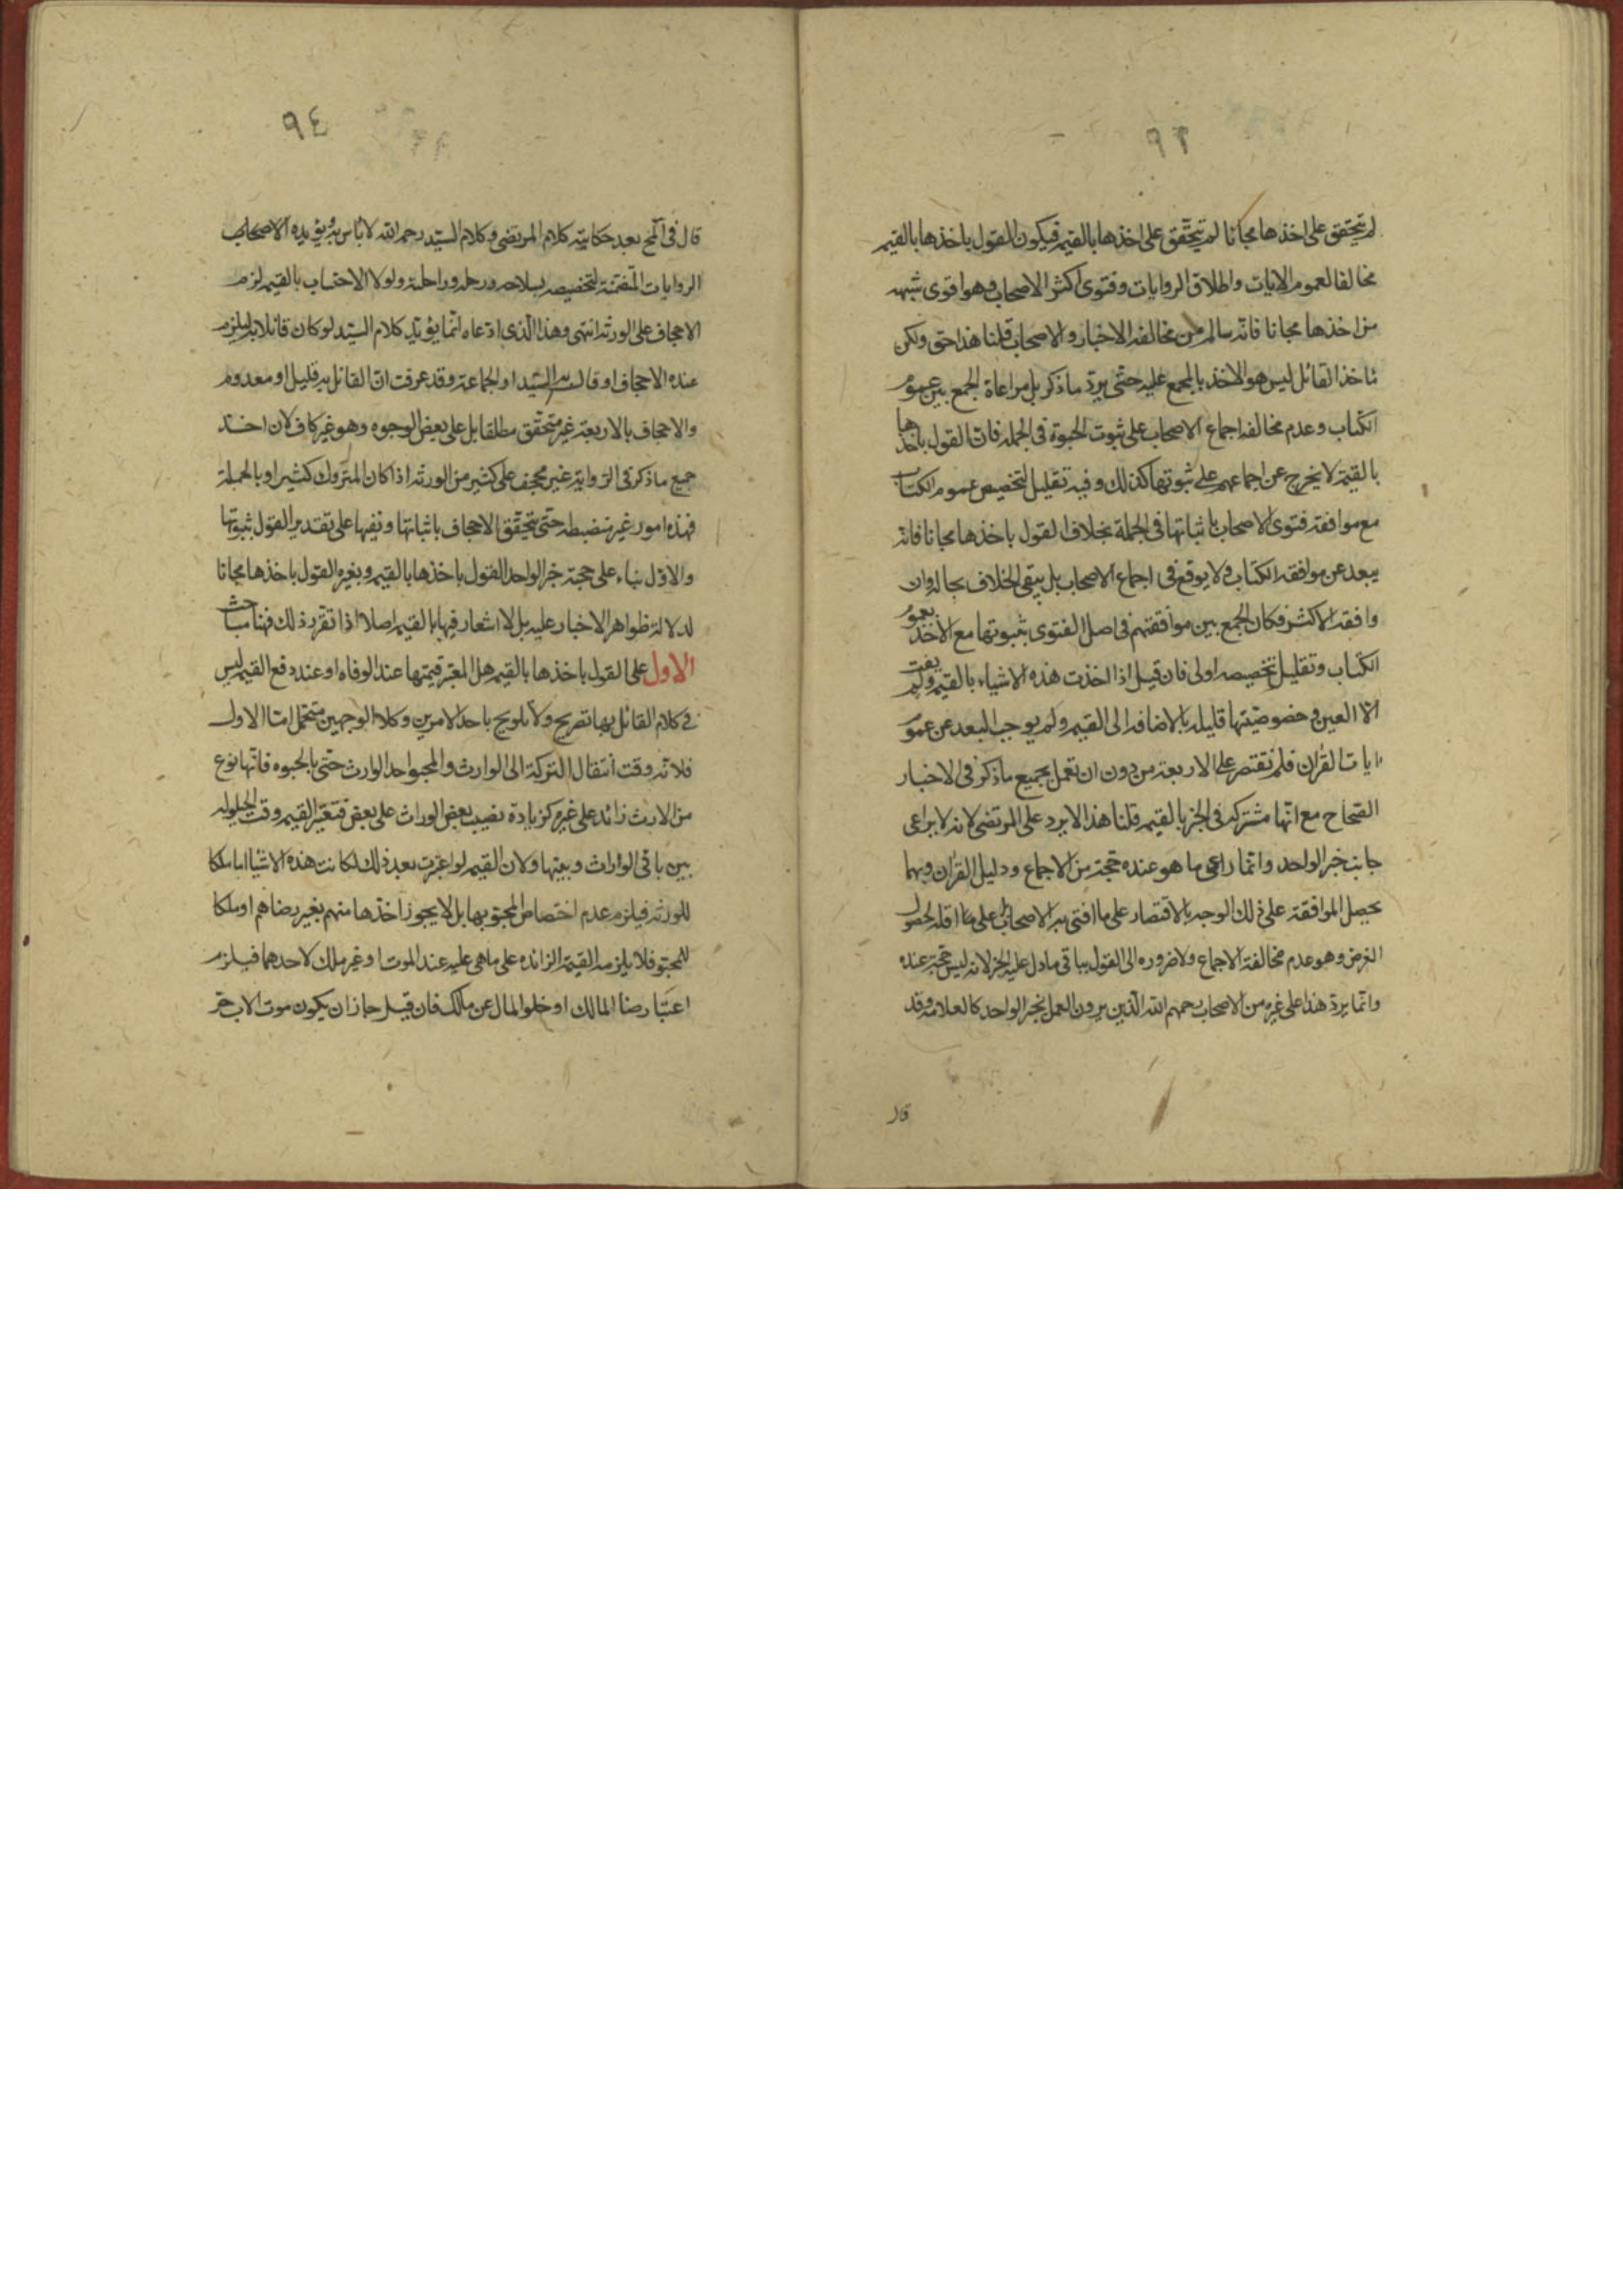 ٩٣
لم يتحقق على اخذها مجانا لم يتحقق على اخذها بالقيمه فيكون القول باخذها بالقيمه
مخالفا لعموم الايات واطلاق الروايات وفتوى اكثر الاصحاب وهو اقوى شبهه
من اخذها مجانا فانه سالم من مخالفه الاخبار والاصحاب قلنا هذا حق ولكن
ماخذ القائل ليس هو الاخذ بالمجمع عليه حتى يرد ما ذكر بل مراعاة الجمع بين عموم
الكتاب وعدم مخالفه اجماع الاصحاب على ثبوت الحبوة في الجمله فان القول باخذها
بالقيمة لا يخرج عن اجماعهم على ثبوتها كذلك وفيه تقليل لتخصيص عموم الكتاب
مع موافقة فتوى الاصحاب باثباتها في الجملة بخلاف القول باخذها مجانا فانه
يبعد عن موافقه الكتاب ولا يوقع في اجماع الاصحاب بل يبقى الخلاف بحاله وان
وافقه الاكثر فكان الجمع بين موافقتهم في اصل الفتوى بثبوتها مع الاخذ بعموم
الكتاب وتقليل تخصيصه اولى فان قيل اذا اخذت هذه الاشياء بالقيمه ولم يفت
الا العين وخصوصيتها قليله بالاضافه الى القيمه ولم يوجب البعد عن عموم
ايات القران فلم نقتصر على الاربعة من دون ان تعمل بجميع ما ذكر في الاخبار
الصحاح مع انها مشتركه في الجبر بالقيمه قلنا هذا لا يرد على المرتضى لانه لا يراعى
جانب خبر الواحد وانما راعى ما هو عنده حجة من الاجماع ودليل القران وبهما
يحصل الموافقة على ذلك الوجه بالاقتصار على ما افتى به الاصحاب على ما اقله لحصول
الغرض وهو عدم مخالفة الاجماع ولا ضروره الى القول بباقى ما دل عليه الخبر لانه ليس حجة عنده
وانما يرد هذا على غيره من الاصحاب رحمهم الله الذين يرون العمل بخبر الواحد كالعلامه وقد
قال
٩٤
قال في المخ بعد حكايته كلام المرتضى وكلام السيد رحمه الله لا باس به ويؤيده الاصحاب
الروايات المتضمنة لتخصيصه بسلاحه ورحله وراحلته ولولا الاحتساب بالقيمه لزم
الاجحاف على الورثه انتهى وهذا الذى ادعاه انما يؤيد كلام السيد لو كان قائلا به ليلزم
عنده الاجحاف او قال به السيد او الجماعة وقد عرفت ان القائل به قليل او معدوم
والاجحاف بالاربعة غير متحقق مطلقا بل على بعض الوجوه وهو غير كاف لان اخذ
جميع ما ذكر في الرواية غير مجحف على كثير من الورثه اذا كان المتروك كثيرا وبالجملة
فهذه امور غير منضبطه حتى يتحقق الاجحاف باثباتها ونفيها على تقدير القول بثبوتها
والاول بناء على حجية خبر الواحد القول باخذها بالقيمه وبغيره القول باخذها مجانا
لدلالة ظواهر الاخبار عليه بل لا اشعار فيها بالقيمه اصلا اذا تقرر ذلك فهنا مباحث
الاول على القول باخذها بالقيمه هل المعتبر قيمتها عند الوفاه او عند دفع القيمه ليس
في كلام القائل بها تصريح ولا تلويح باحد الامرين وكلا الوجهين متحمل اما الاول
فلانه وقت انتقال التركة الى الوارث والمحبو احد الوارث حتى بالحبوه فانها نوع
من الارث زائد على غيره كزيادة نصيب بعض الوراث على بعض فتعتبر القيمه وقت الحيلوله
بين باقى الوارث وبينها ولان القيمه لو اعتبرت بعد ذلك لكانت هذه الاشيا اما ملكا
للورثه فيلزم عدم اختصاص المحبو بها بل لا يجوز اخذها منهم بغير رضاهم او ملكا
للمحبو فلا يلزمه القيمة الزائده على ما هى عليه عند الموت او غير ملك لاحدهما فيلزم
اعتبار رضا المالك او خلو المال عن ملك فان قيل جاز ان يكون موت الاب جز